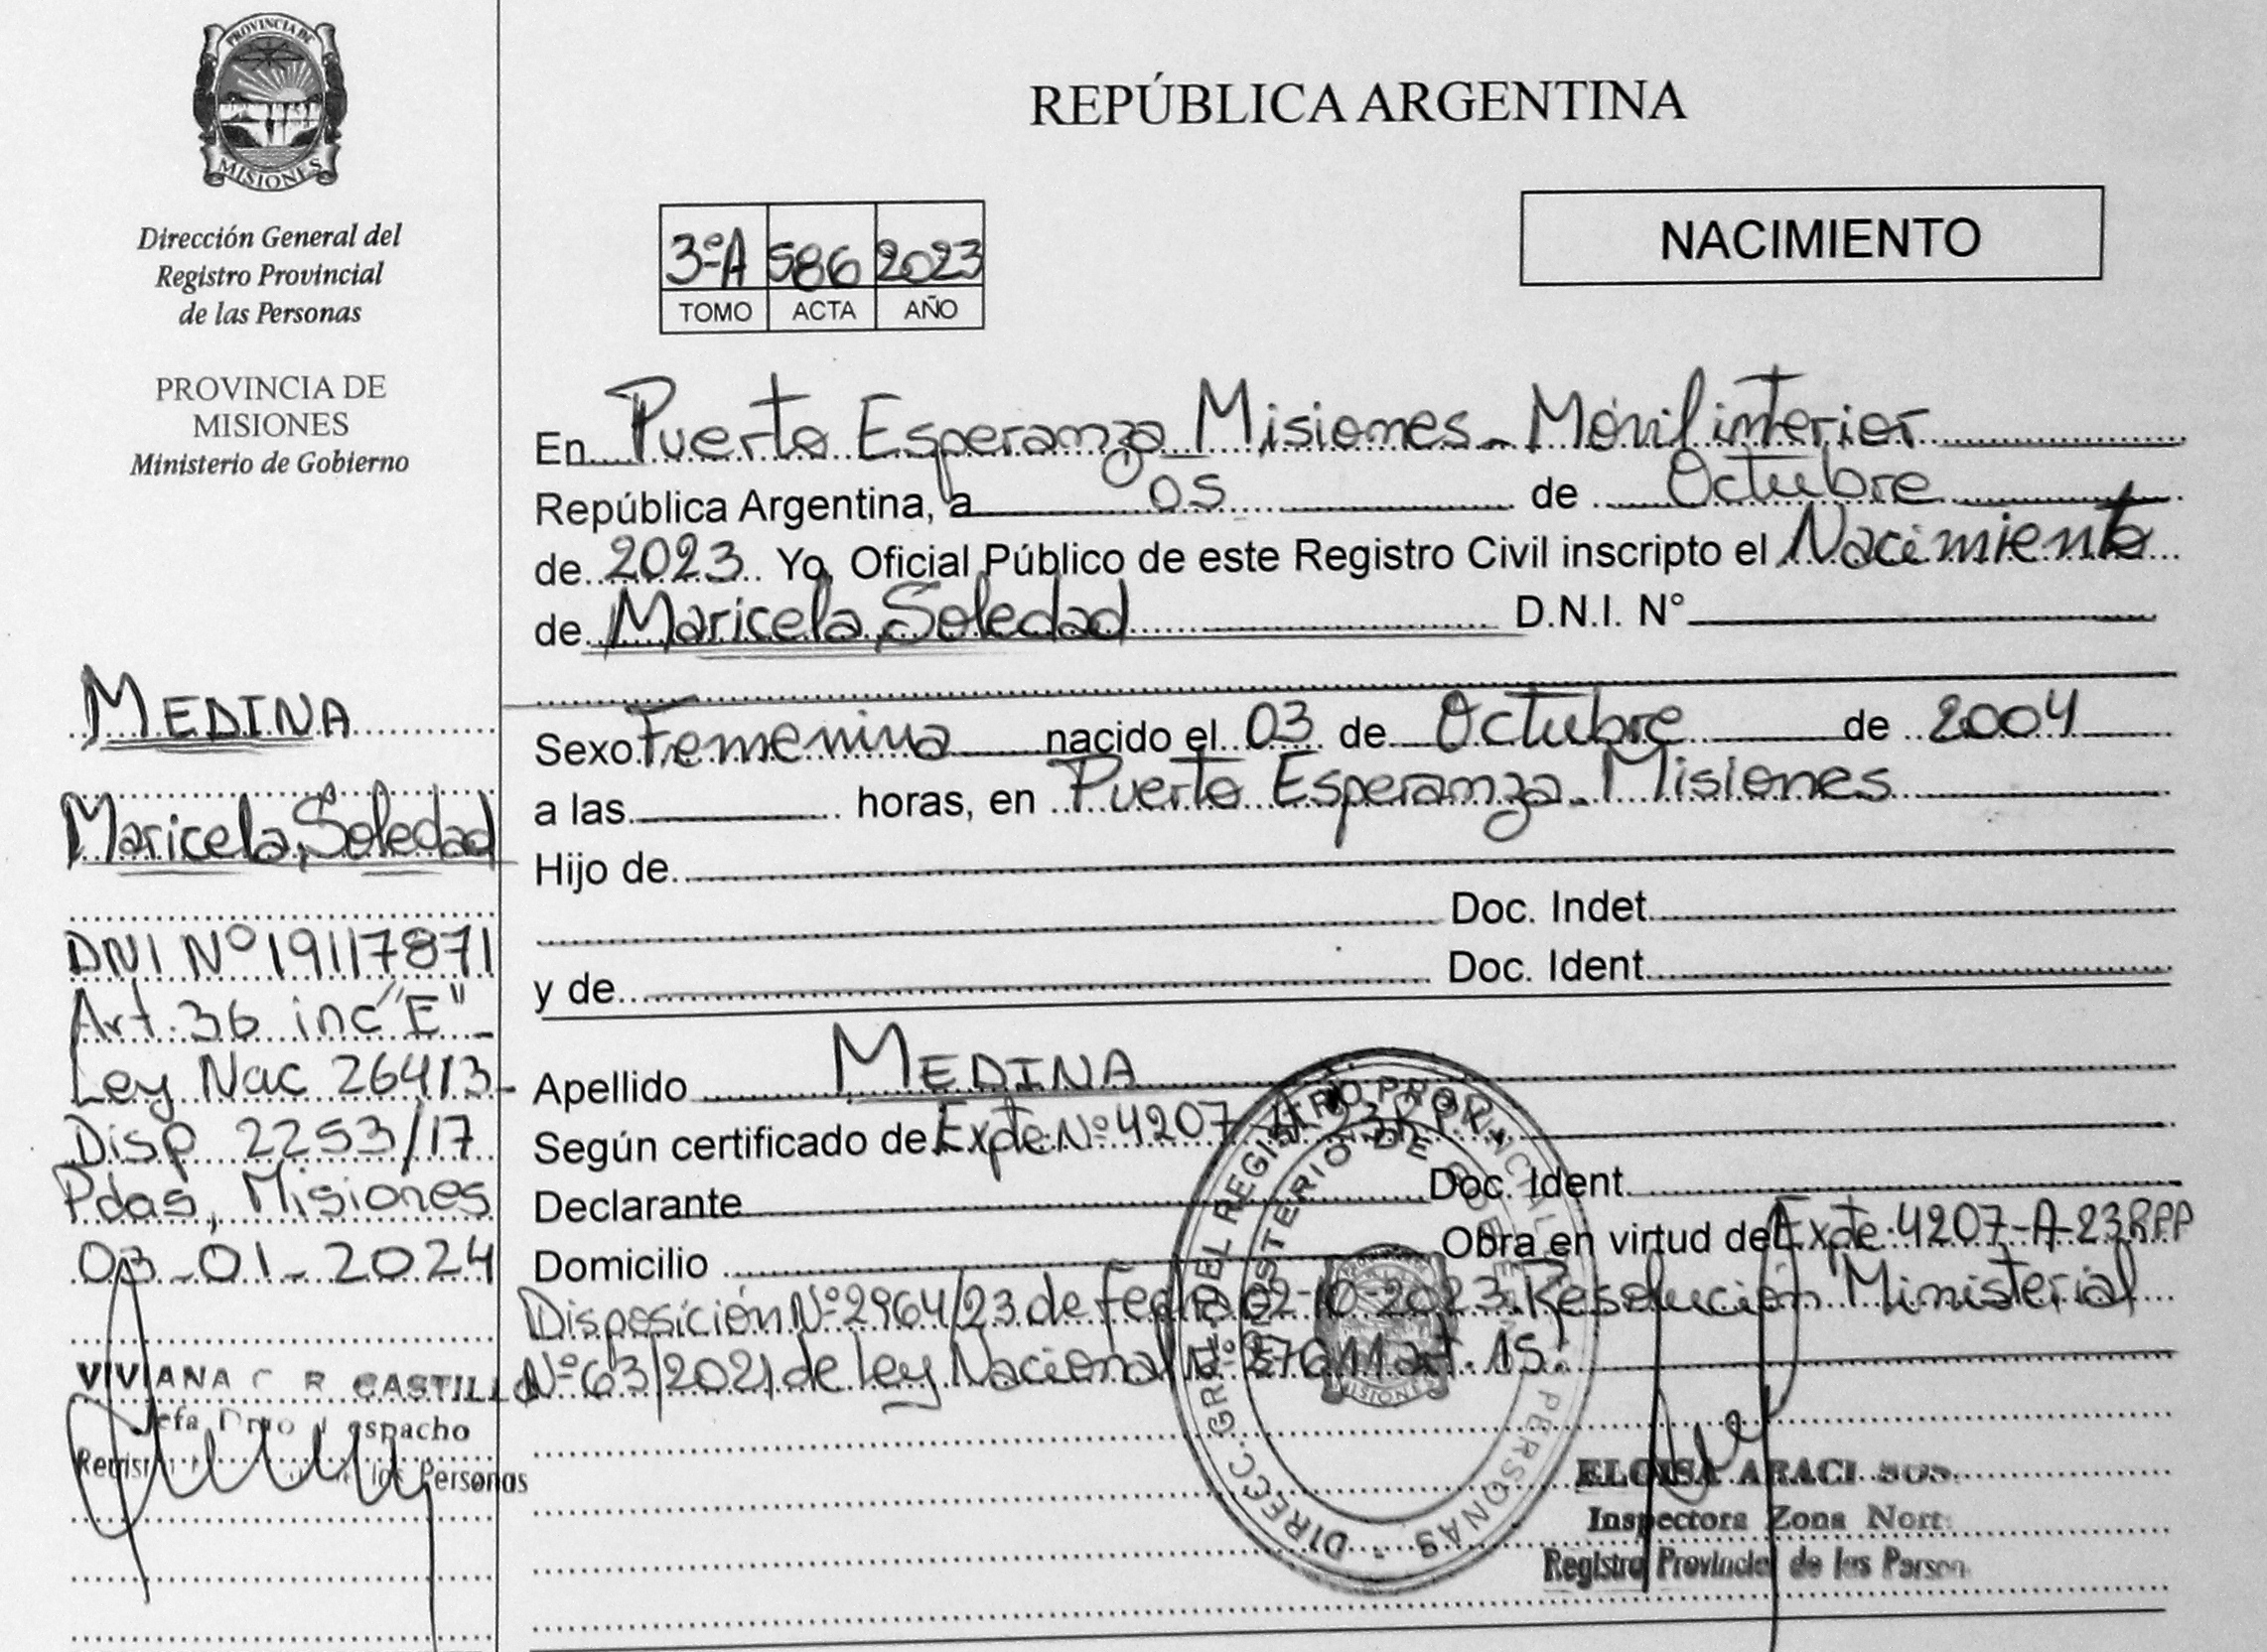 PROVINCIA DE
MISIONES
Dirección General del
Registro Provincial
de las Personas
PROVINCIA DE
MISIONES
Ministerio de Gobierno
MEDINA
Maricela, Soledad
DNI Nº 19117871
Art. 36 inc "E"-
Ley Nac 26413-
Disp 2253/17
Pdas, Misiones
03-01-2024
VIVIANA C R CASTILLO
Jefa Dpto Despacho
las Personas
REPÚBLICA ARGENTINA
NACIMIENTO
3ºA 586 2023
TOMO ACTA AÑO
En Puerto Esperanza Misiones - Móvil interior
República Argentina, a 05 de Octubre
de 2023. Yo, Oficial Público de este Registro Civil inscripto el Nacimiento
de Maricela, Soledad D.N.I. N°
Sexo Femenina nacido el 03 de Octubre de 2004
a las horas, en Puerto Esperanza - Misiones
Hijo de
Doc. Indet
y de Doc. Ident
Apellido MEDINA
Según certificado de Expte Nº 4207-A-23 RPP.
Declarante Doc. Ident.
Domicilio Obra en virtud de Expte. 4207-A-23 RPP
Disposición Nº 2964/23 de fecha 02-10-2023. Resolución Ministerial
Nº 63/2021 de Ley Nacional Nº 27611 art. 15.
DIRECC. GRAL. DEL REGISTRO PROVINCIAL PERSONAS
MINISTERIO DE
MISIONES
ELOISA ARACI
Inspectora Zona
Registro Provincial de las